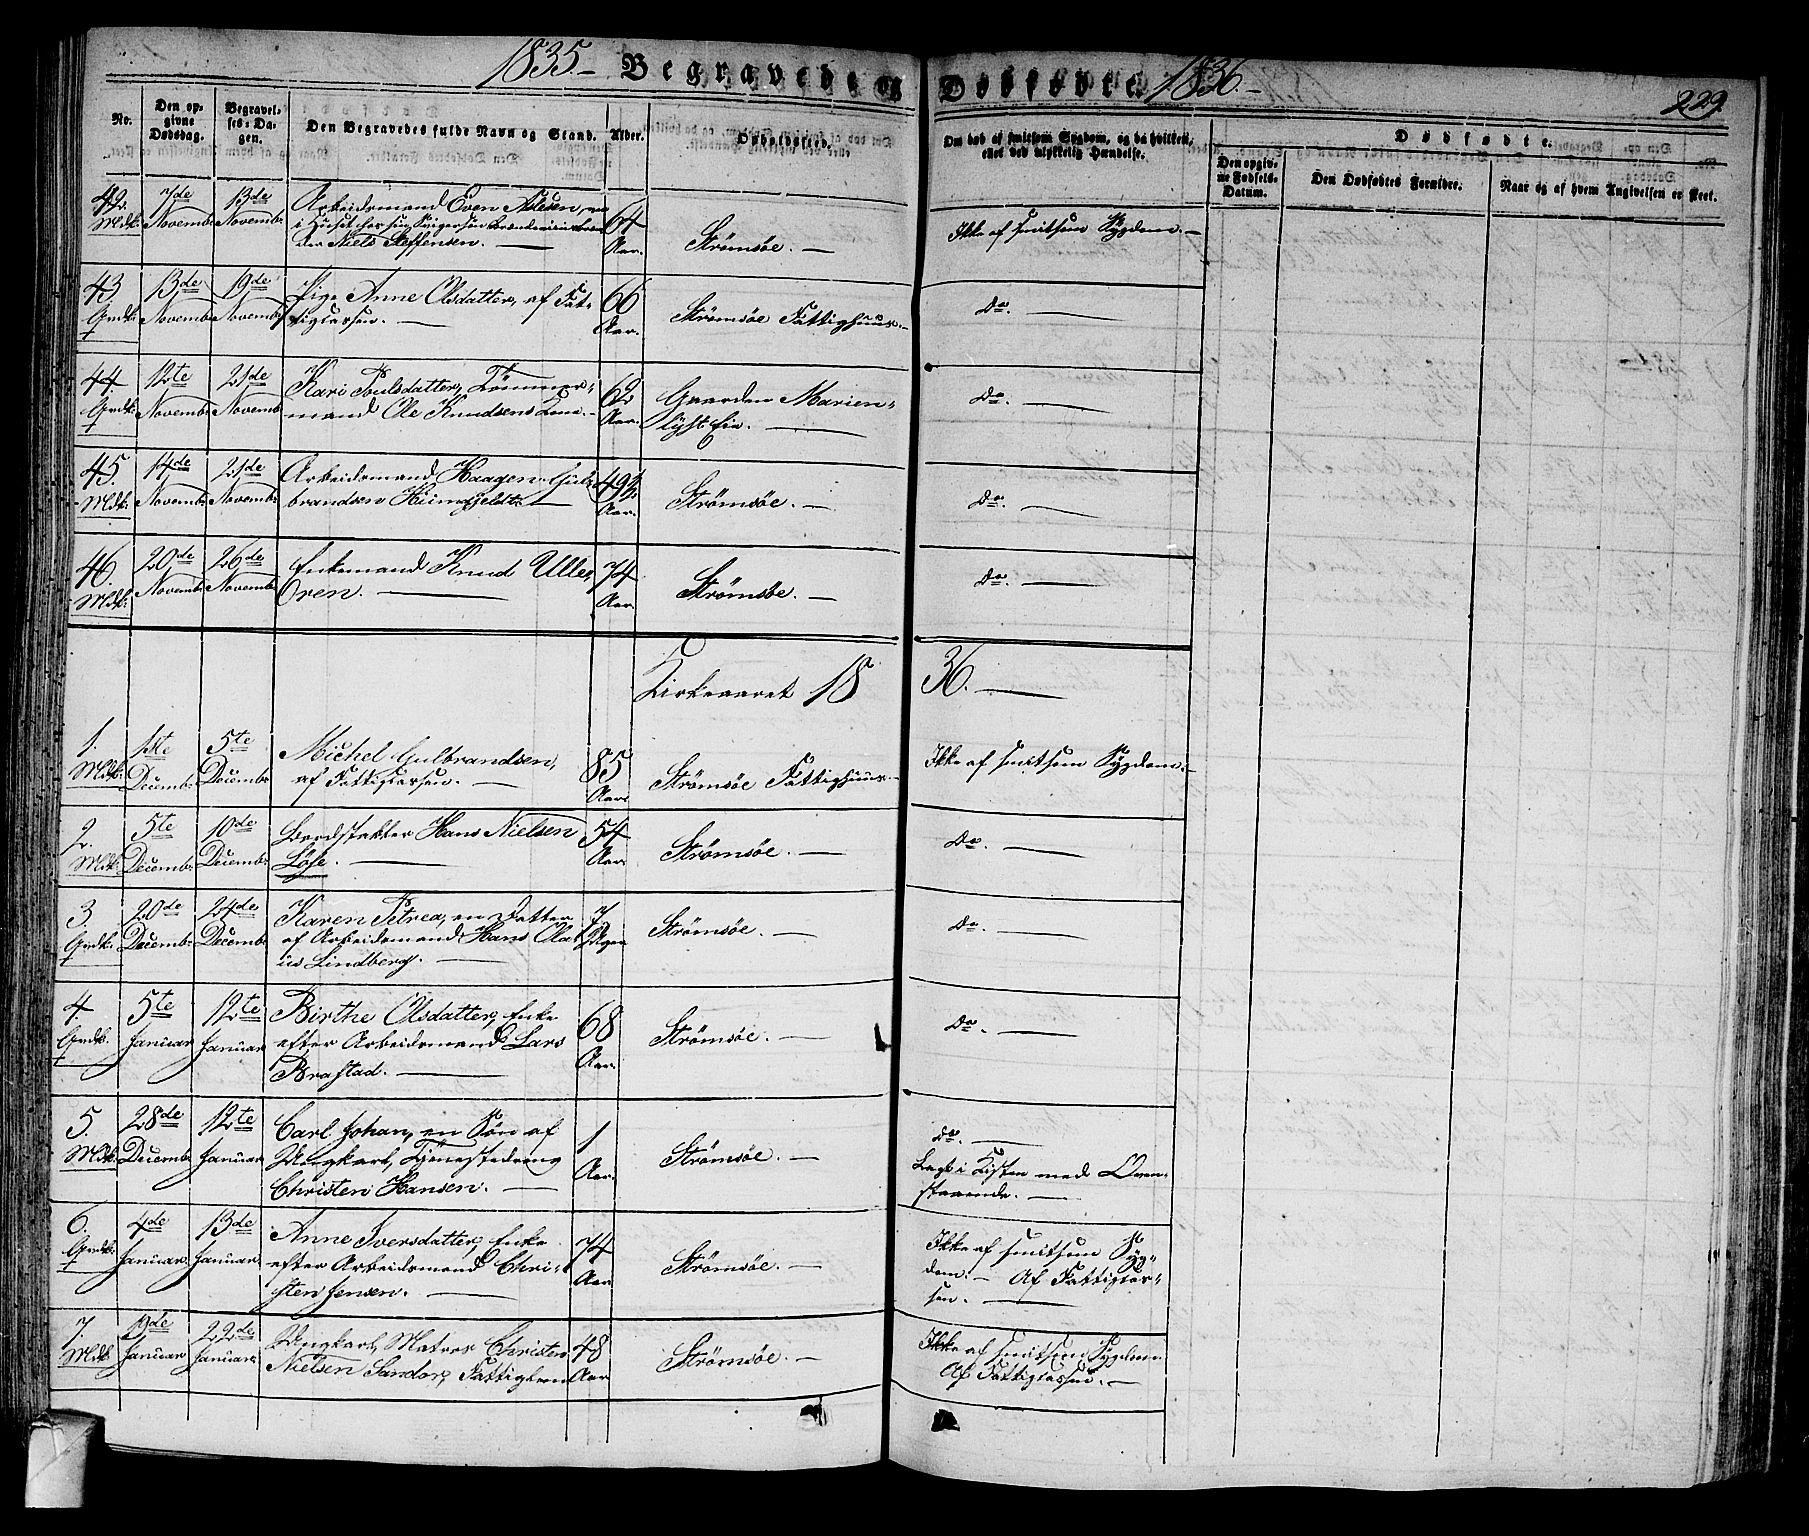 1835.– Begravede og Dødfødte. 1836.–
229.
No.
Den opgivne Dødsdag.
Begravelses-Dagen.
Den Begravedes fulde Navn og Stand.
Alder.
Opholdssted.
Om død af smitsom Sygdom, og da hvilken, eller ved ulykkelig Hændelse.
Dødfødte.
Den opgivne Fødsels-Datum.
Den Dødfødtes Forældre.
Naar og af hvem Angivelsen er skeet.
42. Mdk: 7de Novembr 13de Novembr
Arbeidsmand Even Aslesen,
i Huset hos sin Svigersøn
Niels Steffensen. —
64 Aar.
Strømsøe. —
Ikke af smitsom Sygdom. —
43. Qvdk: 13de Novembr 19de Novembr
Pige Anne Olsdatter, af Fat-
tigkassen. —
66 Aar.
Strømsøe Fattighuus. —
Do. —
44 Qvdk: 12te Novembr 21de Novembr
Kari Poulsdatter, Tømmer-
mand Ole Knudsens Kone. —
62 Aar.
Gaarden Marien-
lyst Eie. —
Do. —
45. Mdk: 14de Novembr 21de Novembr
Arbeidsmand Haagen Gul-
brandsen Heingjeldt. —
49½ Aar.
Strømsøe. —
Do. —
46. Mdk: 20de Novembr 26de Novembr
Enkemand Knud Ulle-
Øren. —
74 Aar.
Strømsøe. —
Do. —
Kirkeaaret 1836. —
1. Mdk: 1ste Decembr 5te Decembr
Michel Gulbrandsen,
af Fattigkassen. —
85 Aar.
Strømsøe Fattighuus. —
Ikke af smitsom Sygdom. —
2. Mdk: 5te Decembr 10de Decembr
Bordstabler Hans Nielsen
Løse. —
54 Aar.
Strømsøe. —
Do. —
3. Qvdk: 20de Decembr 24de Decembr
Karen Petrea, en Datter
af Arbeidsmand Hans Ola-
us Lindberg. —
7 Uger
Strømsøe. —
Do. —
4. Qvdk. 5te Januar 12te Januar
Birthe Olsdatter, Enke
efter Arbeidsmand Lars
Brastad. —
68 Aar.
Strømsøe. —
Do. —
5. Mdk: 28de Decembr 12te Januar
Carl Johan, en Søn af
Ungkarl, Tjenestedreng
Christen Hansen. —
1 Aar.
Strømsøe. —
Do. —
Lagt i Kisten med Oven-
staaende. —
6. Qvdk: 4de Januar. 13de Januar.
Anne Iversdatter, Enke
efter Arbeidsmand Chri-
sten Jensen. —
74 Aar
Strømsøe. —
Ikke af smitsom Syg-
dom. — Af Fattigkas-
sen. —
7. Mdk: 19de Januar 22de Januar
Ungkarl, Matros Christen
Nielsen Sandor, Fattiglem
48 Aar
Strømsøe. —
Ikke af smitsom Sygdom.
Af Fattigkassen. —